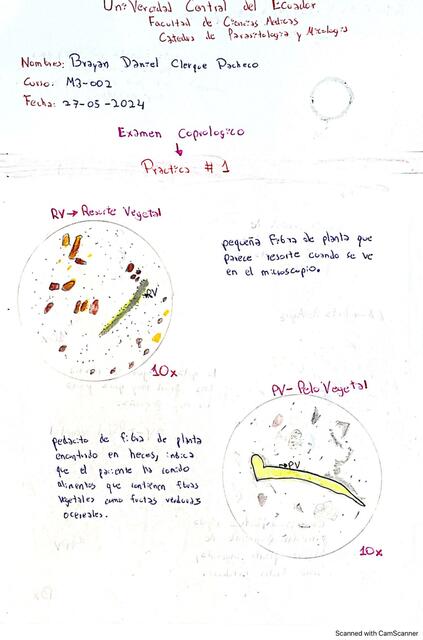 Universidad Central del Ecuador
Facultad de Ciencias Medicas
Catedra de Parasitologia y Micologia
Nombres: Brayan Daniel Clerque Pacheco
Curso: M3-002
Fecha: 27-05-2024
Examen Coprologico
Practica #1
RV → Resorte Vegetal
pequeña fibra de planta que
parece resorte cuando se ve
en el microscopio.
RV
10x
PV- Pelo Vegetal
pedacito de fibra de planta
encontrado en heces, indica
que el paciente ha comido
alimentos que contienen fibras
vegetales como frutas verduras
o cereales.
→PV
10x
Scanned with CamScanner